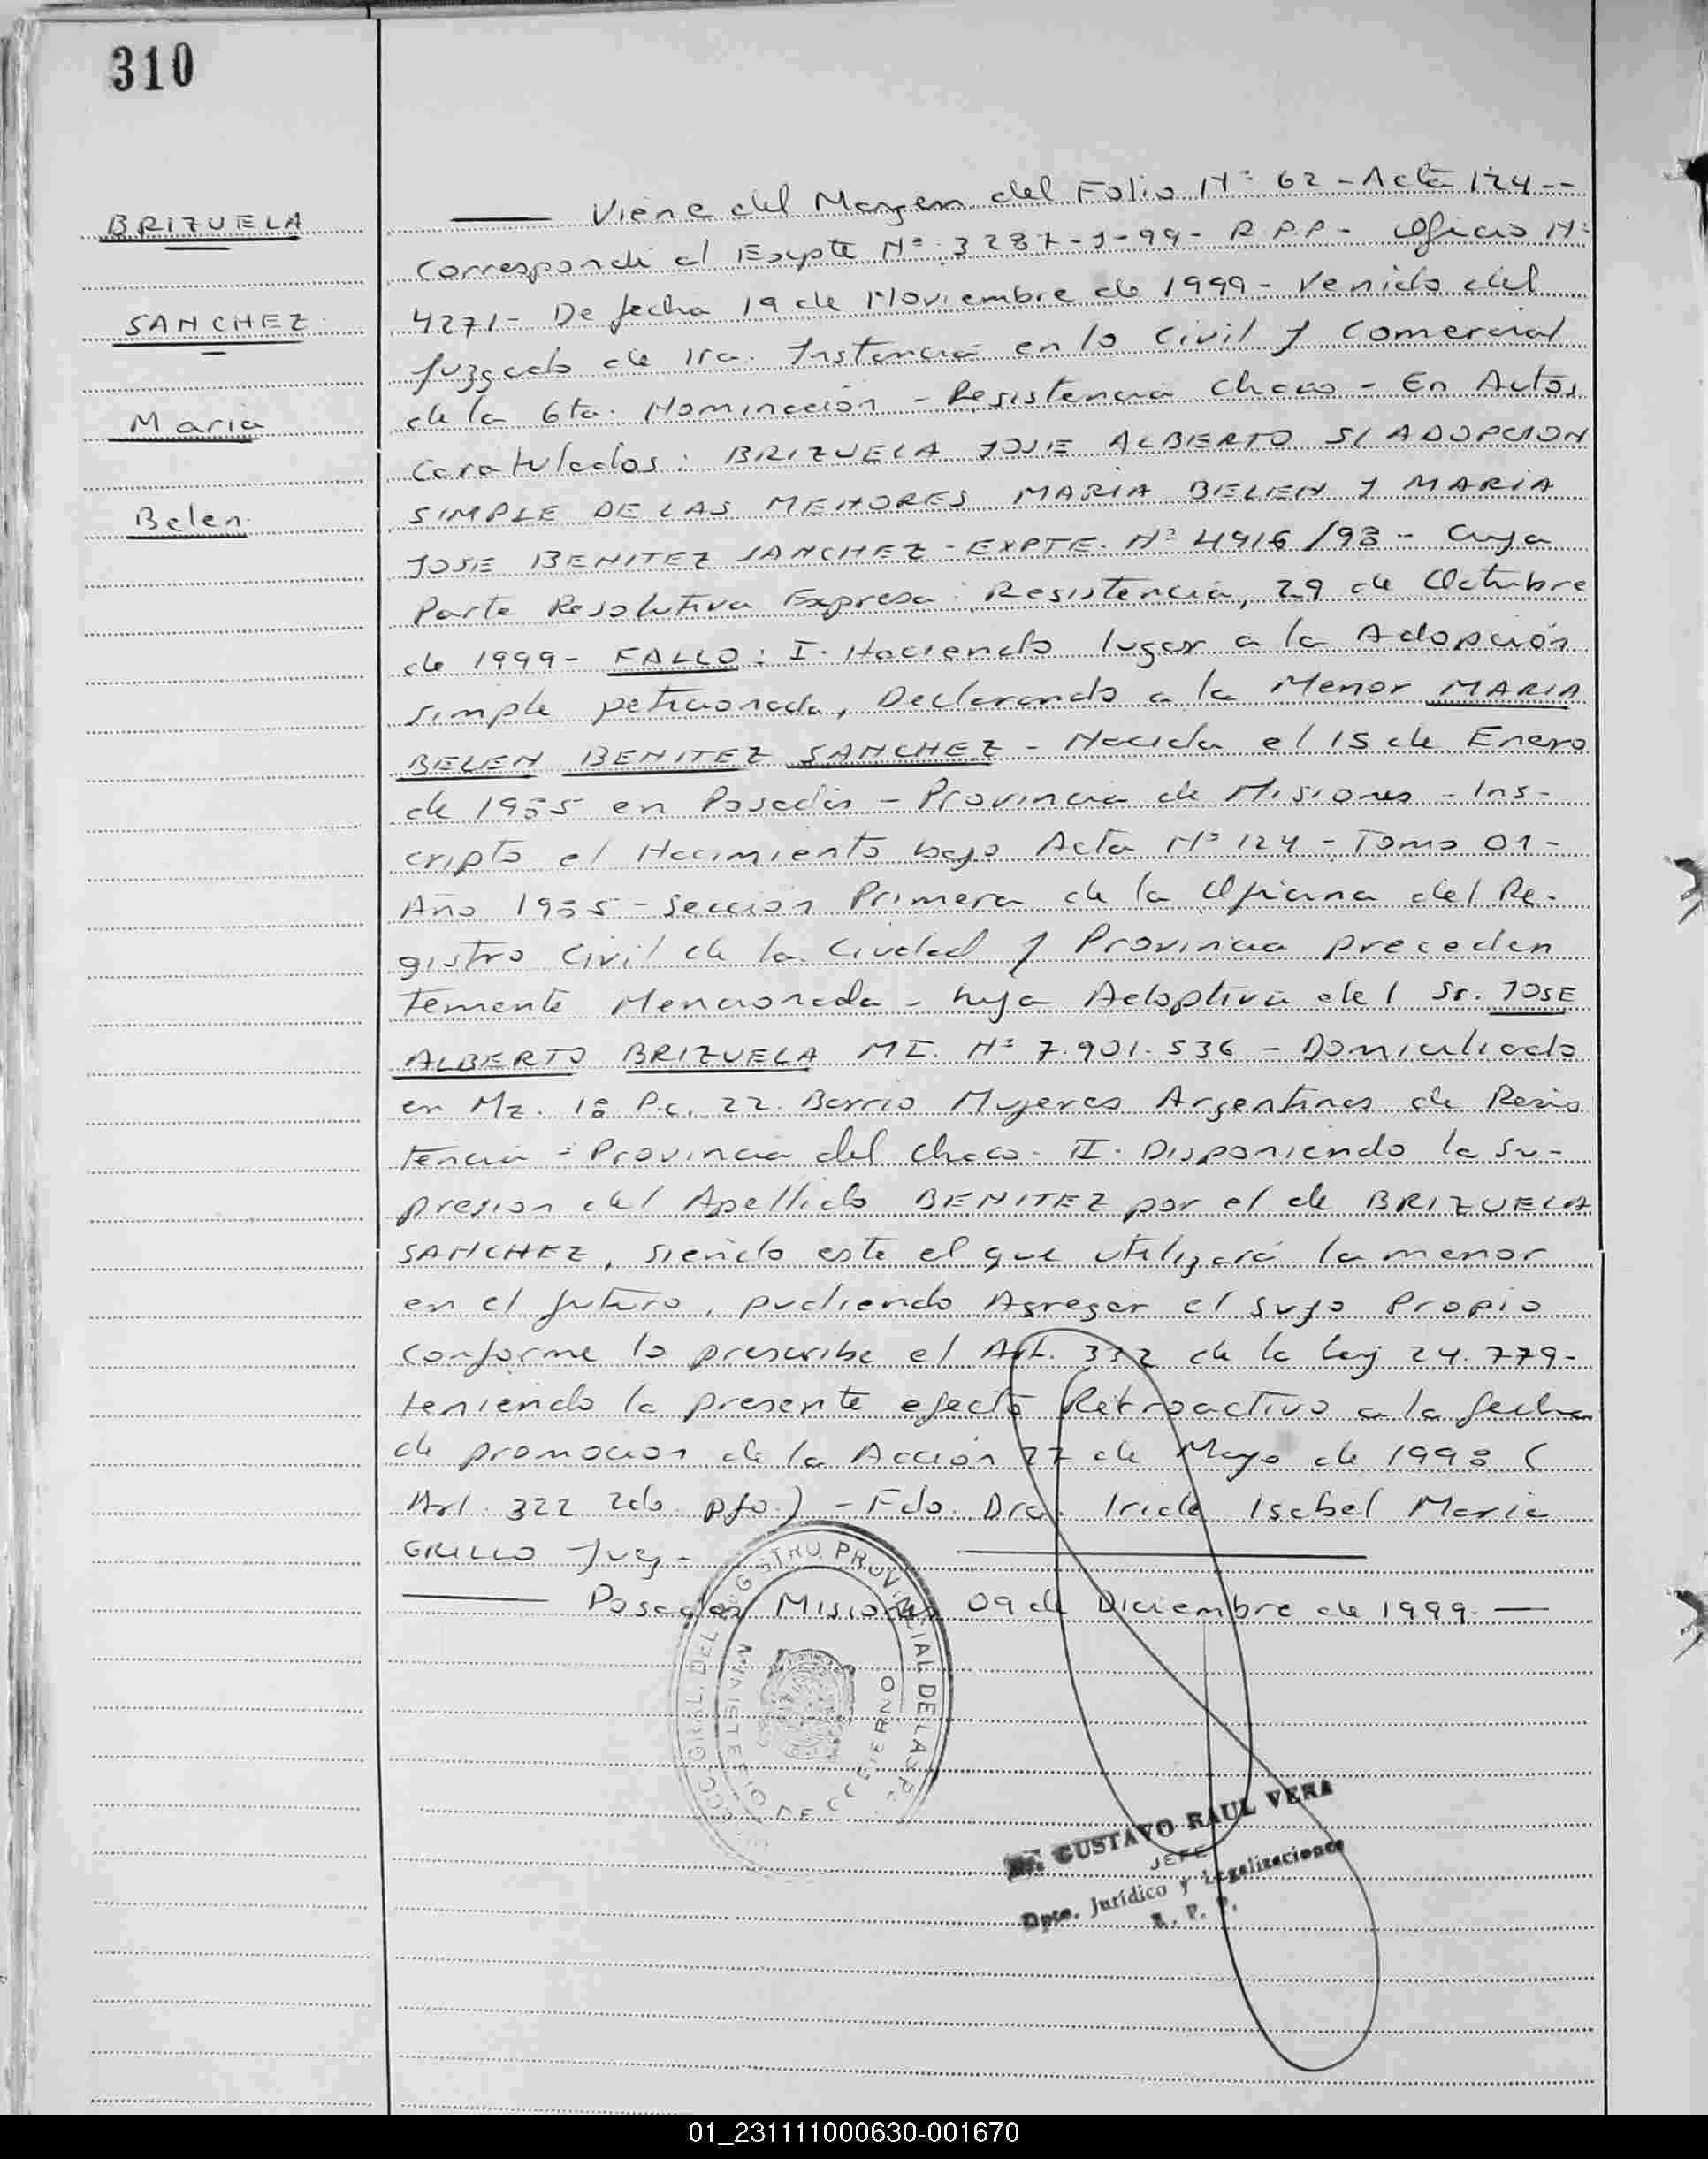 310
BRIZUELA
SANCHEZ
Maria
Belen
Viene del Margen del Folio Nº 62 - Acta 124 --
Corresponde al Expte Nº 3287-J-99- R.P.P - Oficio Nº
4271- De fecha 19 de Noviembre de 1999 - Venido del
Juzgado de 1ra. Instancia en lo Civil y Comercial
de la 6ta. Nominación - Resistencia Chaco - En Autos
Caratulados: BRIZUELA JOSE ALBERTO S/ADOPCION
SIMPLE DE LAS MENORES MARIA BELEN Y MARIA
JOSE BENITEZ SANCHEZ - EXPTE. Nº 4916/98 - Cuya
Parte Resolutiva Expresa: Resistencia, 29 de Octubre
de 1999- FALLO: I. Haciendo lugar a la Adopción
simple peticionada, Declarando a la Menor MARIA
BELEN BENITEZ SANCHEZ - Nacida el 15 de Enero
de 1985 en Posadas - Provincia de Misiones - Ins-
cripto el Nacimiento bajo Acta Nº 124 - Tomo 01 -
Año 1985 - Sección Primera de la Oficina del Re-
gistro Civil de la Ciudad y Provincia preceden
temente Mencionada - hija Adoptiva del Sr. JOSE
ALBERTO BRIZUELA MI. Nº 7.901.536 - Domiciliado
en Mz. 18 Pc. 22 Barrio Mujeres Argentinas de Resis
tencia - Provincia del Chaco - II. Disponiendo la Su-
presion del Apellido BENITEZ por el de BRIZUELA
SANCHEZ, siendo este el que utilizará la menor
en el futuro, pudiendo Agregar el suyo Propio
conforme lo prescribe el Art. 332 de la Ley 24.779-
teniendo la presente efecto Retroactivo a la fecha
de promocion de la Acción 27 de Mayo de 1998 (
Art. 322 2do. pfo.) - Fdo. Dra. Iride Isabel Maria
GRILLO Juez -
Posadas Misiones 09 de Diciembre de 1999. —
GRAL. DEL REGISTRO PROVINCIAL DE LAS P.
MINISTERIO DE GOBIERNO
GUSTAVO RAUL VERA
JEFE
Dpto. Jurídico y Legalizaciones
R. P. P.
01_231111000630-001670